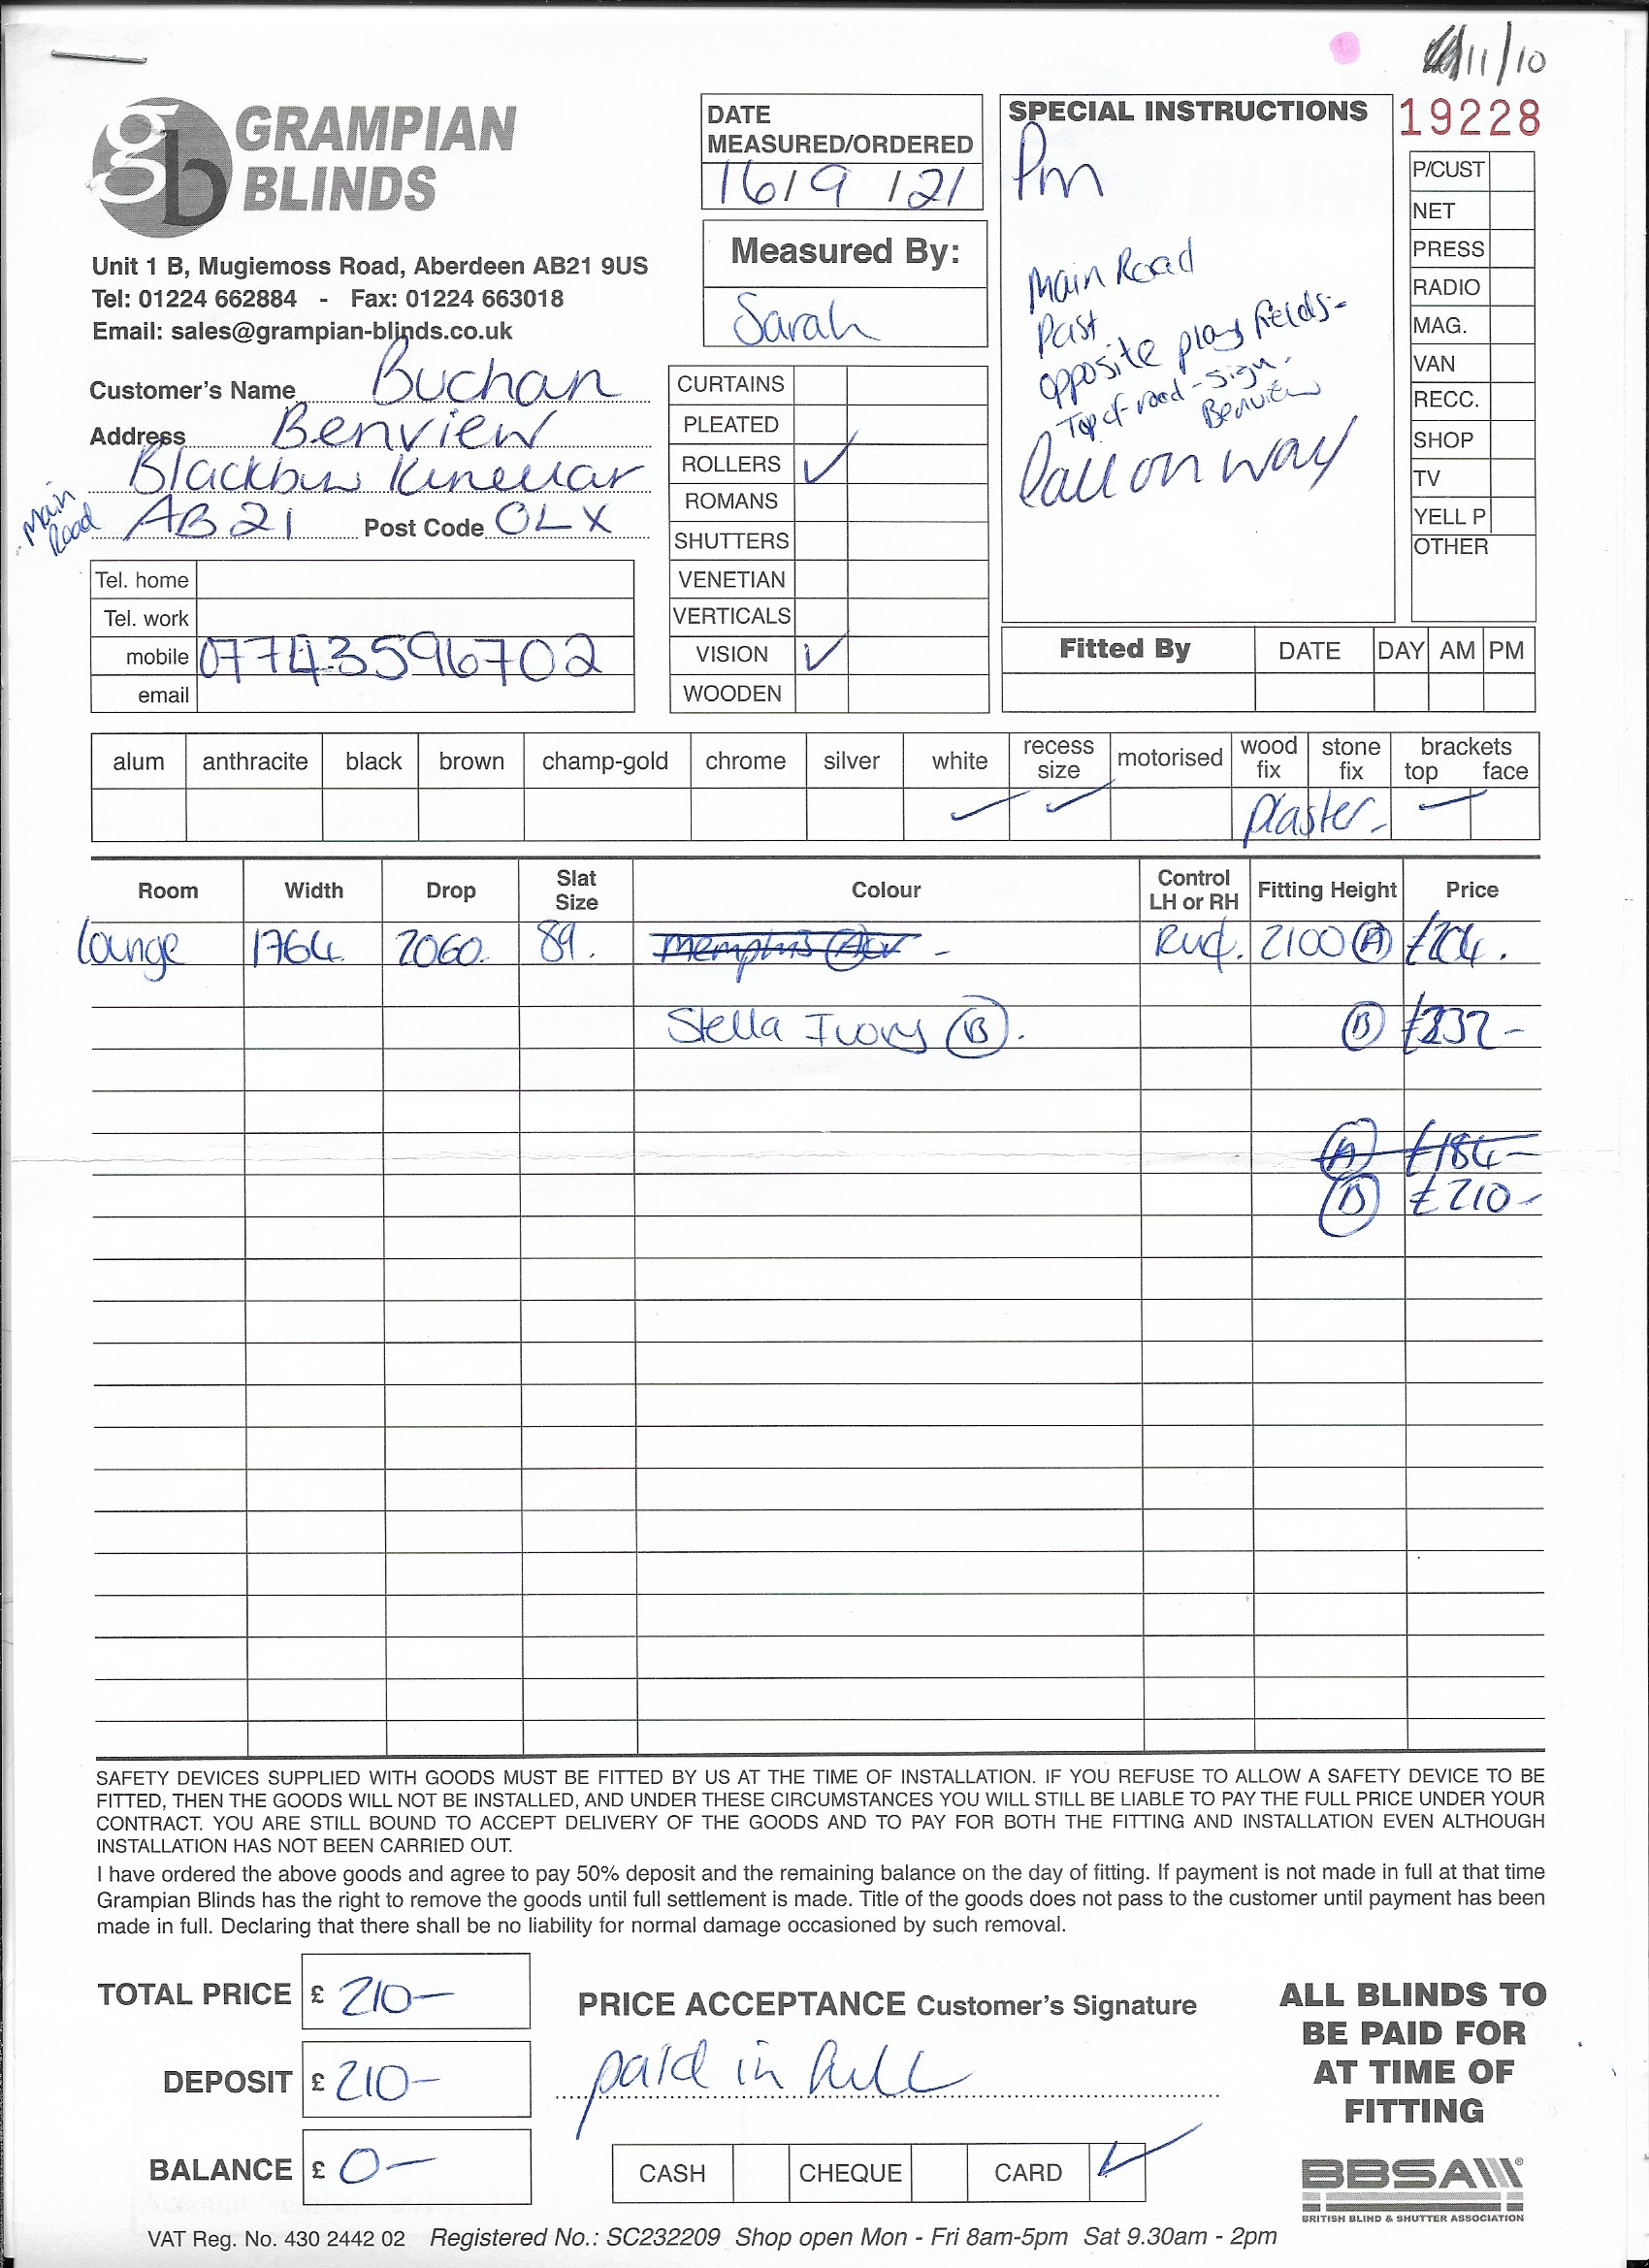 11/10
GRAMPIAN
BLINDS
Unit 1 B, Mugiemoss Road, Aberdeen AB21 9US
Tel: 01224 662884 - Fax: 01224 663018
Email: sales@grampian-blinds.co.uk
DATE
MEASURED/ORDERED
16/9/21
Measured By:
Sarah
SPECIAL INSTRUCTIONS
Pm
Main Road
Past
opposite play fields-
Top of road - sign.
Benview
Call on way
19228
P/CUST
NET
PRESS
RADIO
MAG.
VAN
RECC.
SHOP
TV
YELL P
OTHER
Customer's Name Buchan
Address Benview
Blackburn Kinellar
Main Road
AB21 Post Code 0LX
Tel. home
Tel. work
mobile 07743596702
email
CURTAINS
PLEATED
ROLLERS ✓
ROMANS
SHUTTERS
VENETIAN
VERTICALS
VISION ✓
WOODEN
Fitted By DATE DAY AM PM
alum anthracite black brown champ-gold chrome silver white recess size motorised wood fix stone fix brackets top face
✓ ✓ Plaster - ✓
Room Width Drop Slat Size Colour Control LH or RH Fitting Height Price
Lounge 1764. 2060. 89. Memphis (A) - 2100 (A) £204.
Stella Ivory (B). (B) £232-
(A) £184-
(B) £210-
SAFETY DEVICES SUPPLIED WITH GOODS MUST BE FITTED BY US AT THE TIME OF INSTALLATION. IF YOU REFUSE TO ALLOW A SAFETY DEVICE TO BE
FITTED, THEN THE GOODS WILL NOT BE INSTALLED, AND UNDER THESE CIRCUMSTANCES YOU WILL STILL BE LIABLE TO PAY THE FULL PRICE UNDER YOUR
CONTRACT. YOU ARE STILL BOUND TO ACCEPT DELIVERY OF THE GOODS AND TO PAY FOR BOTH THE FITTING AND INSTALLATION EVEN ALTHOUGH
INSTALLATION HAS NOT BEEN CARRIED OUT.
I have ordered the above goods and agree to pay 50% deposit and the remaining balance on the day of fitting. If payment is not made in full at that time
Grampian Blinds has the right to remove the goods until full settlement is made. Title of the goods does not pass to the customer until payment has been
made in full. Declaring that there shall be no liability for normal damage occasioned by such removal.
TOTAL PRICE £ 210-
DEPOSIT £ 210-
BALANCE £ 0-
PRICE ACCEPTANCE Customer's Signature
paid in full
CASH CHEQUE CARD ✓
ALL BLINDS TO
BE PAID FOR
AT TIME OF
FITTING
BBSA
BRITISH BLIND & SHUTTER ASSOCIATION
VAT Reg. No. 430 2442 02 Registered No.: SC232209 Shop open Mon - Fri 8am-5pm Sat 9.30am - 2pm